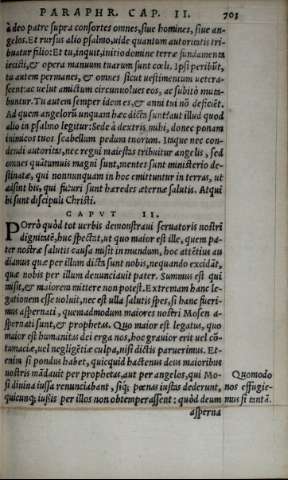 PARAPHR. CAP. II. 701
à deo patre supra consortes omnes, siue homines, siue an-
gelos. Et rursus alio psalmo, uide quantum autoritatis tri-
buatur filio: Et tu, inquit, initio domine terræ fundamenta
iecisti, & opera manuum tuarum sunt cœli. Ipsi peribũt,
tu autem permanes, & omnes sicut uestimentum uetera-
scent: ac uelut amictum circunuolues eos, ac subito muta-
buntur. Tu autem semper idem es, & anni tui nõ deficiẽt.
Ad quem angelorũ unquam hæc dicta sunt? aut illud quod
alio in psalmo legitur: Sede à dextris mihi, donec ponam
inimicos tuos scabellum pedum tuorum. Itaque nec con-
dendi autoritas, nec regni maiestas tribuitur angelis, sed
omnes quátumuis magni sunt, mentes sunt ministerio de-
stinatæ, qui nonnunquam in hoc emittuntur in terras, ut
adsint his, qui futuri sunt hæredes æternæ salutis. Atqui
hi sunt discipuli Christi.
CAPVT II.
POrrò quòd tot uerbis demonstraui seruatoris nostri
dignitatẽ, huc spectat, ut quo maior est ille, quem pa-
ter nostræ salutis causa misit in mundum, hoc attẽtius au
diamus quæ per illum dicta sunt nobis, nequando excidãt,
quæ nobis per illum denunciauit pater. Summus est qui
misit, & maiorem mittere non potest. Extremam hanc le-
gationem esse uoluit, nec est ulla salutis spes, si hanc fueri-
mus aspernati, quemadmodum maiores nostri Mosen a-
spernati sunt, & prophetas. Quo maior est legatus, quo
maior est humanitas dei erga nos, hoc grauior erit uel cõ-
tumaciæ, uel negligẽtiæ culpa, nisi dictis paruerimus. Et-
enim si pondus habet, quicquid hactenus deus maioribus
nostris mãdauit per prophetas, aut per angelos, qui Mo- Quomodo
si diuina iussa renunciabant, siq; pœnas iustas dederunt, nos effugie-
quicunq; iussis per illos non obtemperassent: quòd deum mus si tantã.
asperna